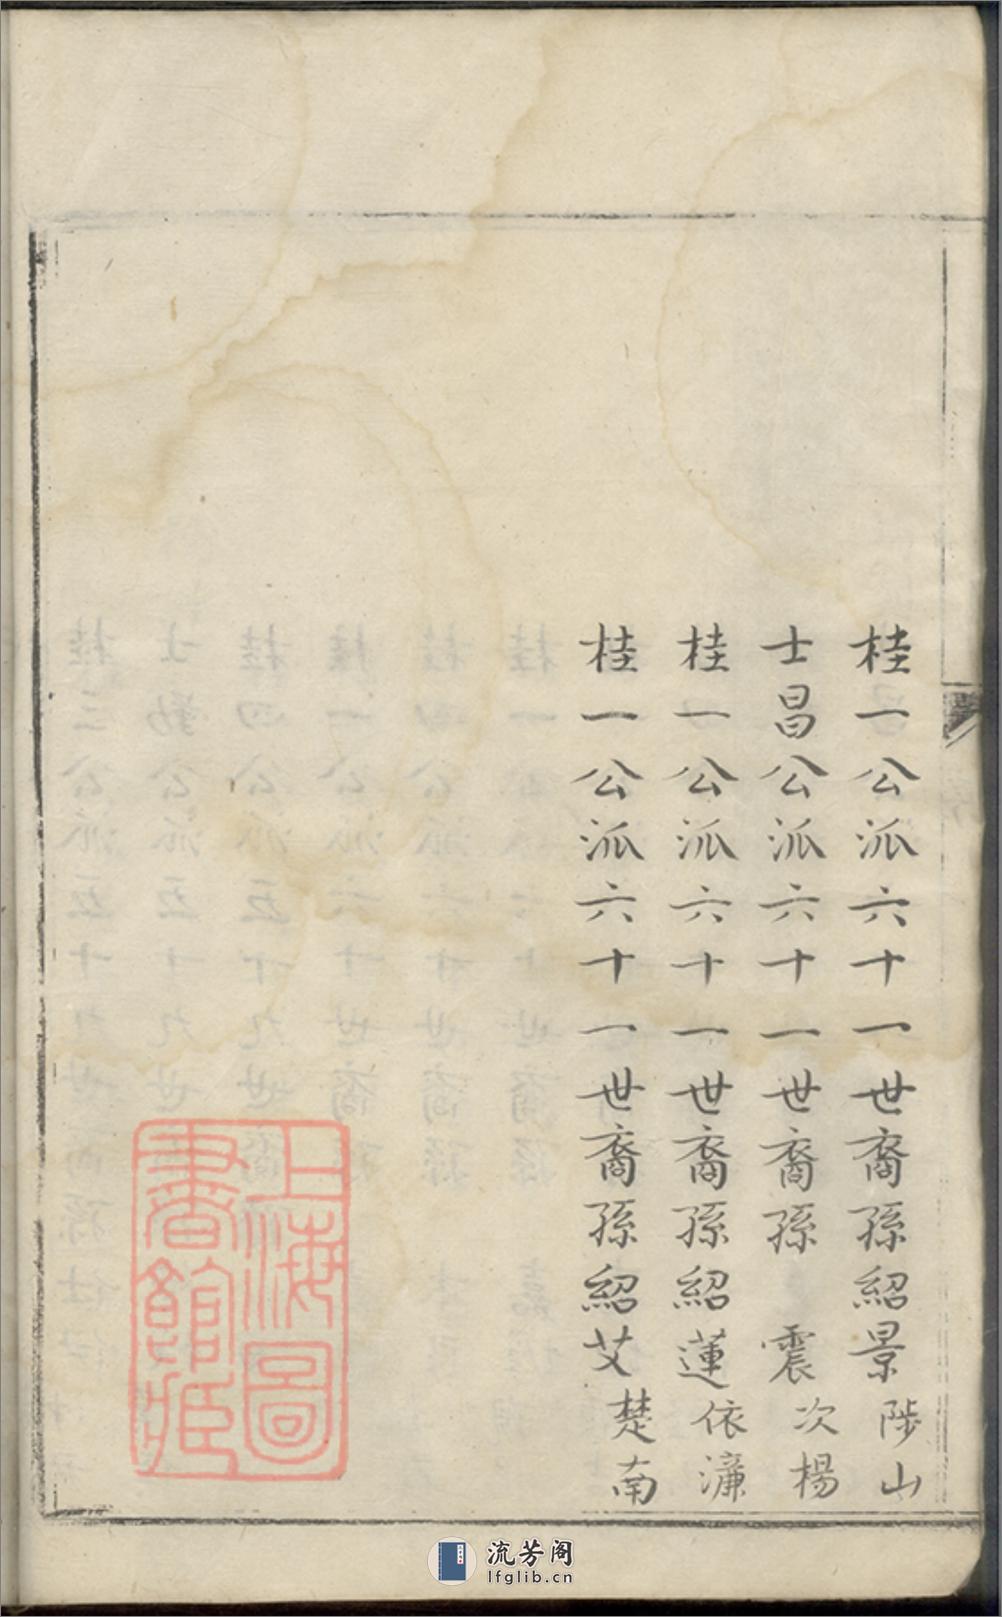 桂一公派六十一世裔孫紹景陟山
士昌公派六十一世裔孫震次楊
桂一公派六十一世裔孫紹蓮依濂
桂一公派六十一世裔孫紹艾楚南
上海圖
書館藏
流芳阁
lfglib.cn